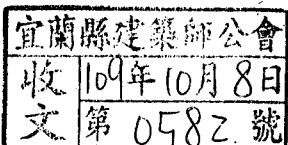 宜蘭縣建築師公會
收文
109年10月8日
第0582號